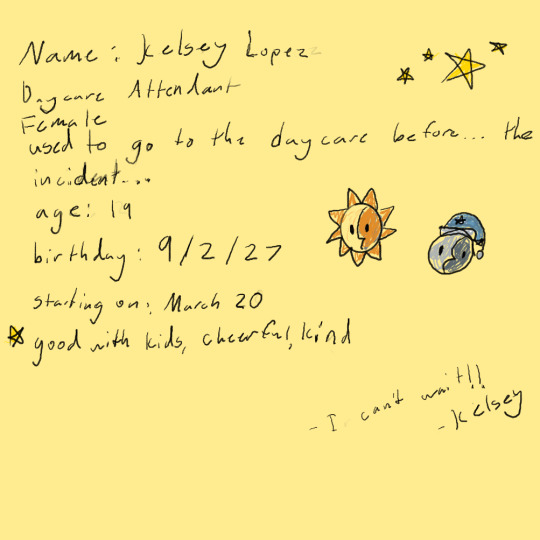 Name: Kelsey Lopez
Daycare Attendant
Female
used to go to the daycare before... the
incident...
age: 19
birthday: 9/2/27
starting on: March 20
good with kids, cheerful, kind
- I can't wait!!
- Kelsey